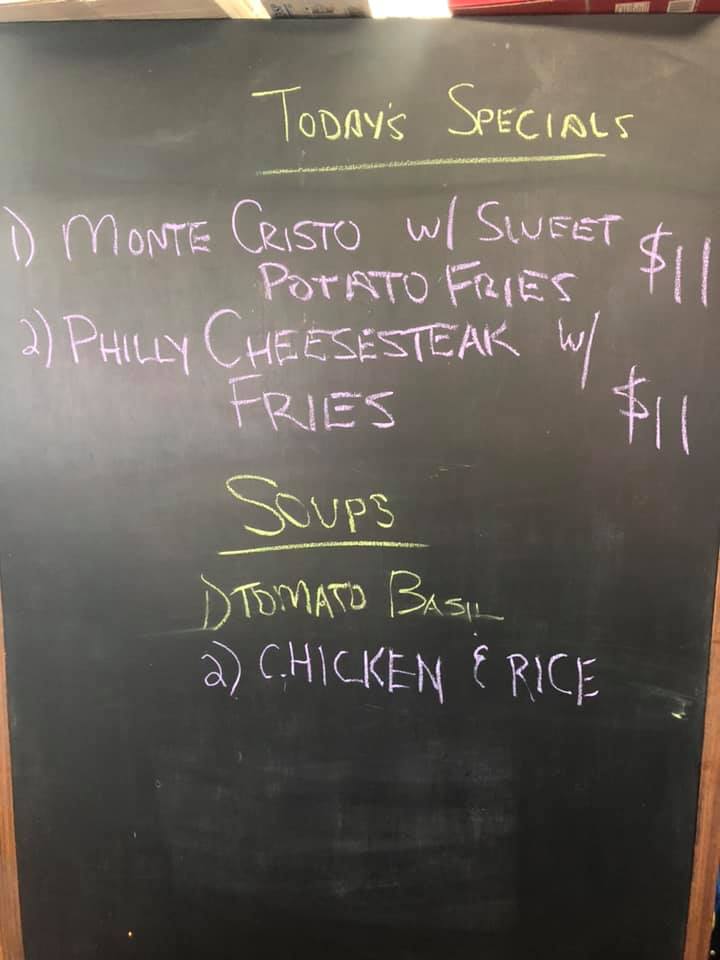 TODAY'S SPECIALS
1) MONTE CRISTO W/ SWEET
POTATO FRIES $11
2) PHILLY CHEESESTEAK W/
FRIES $11
SOUPS
1) TOMATO BASIL
2) CHICKEN & RICE